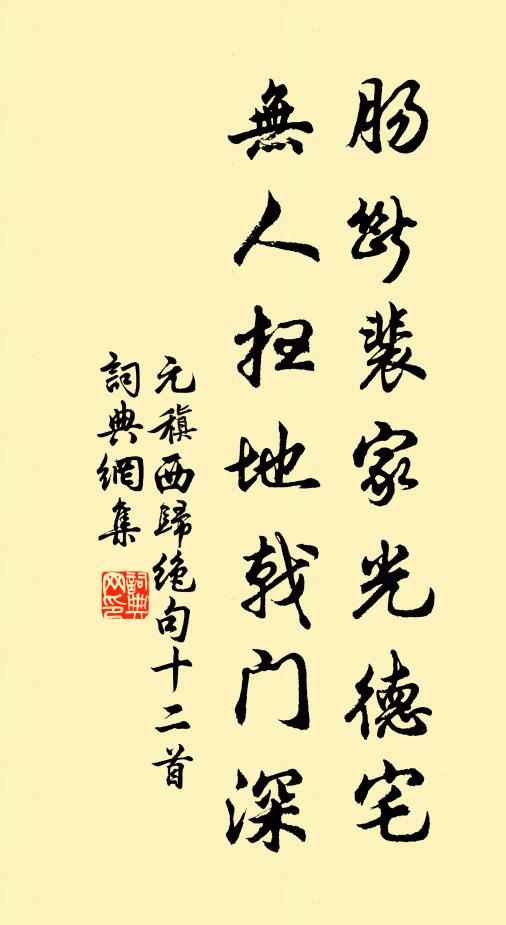 肠斷裴家光德宅
無人扫地戟门深
元稹西歸絶句十二首
詞典網集
詞典網印